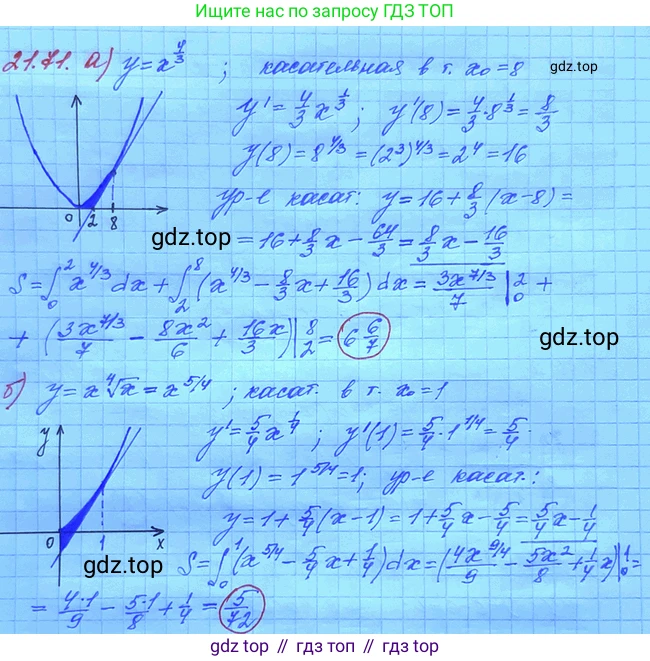 Ищите ответы по запросу ГДЗ ТОП
21.71. а) y = x^{4/3} ; касательная в т. x₀ = 8
y' = 4/3 x^{1/3} ; y'(8) = 4/3 · 8^{1/3} = 8/3
y(8) = 8^{4/3} = (2³)^{4/3} = 2⁴ = 16
ур-е касат: y = 16 + 8/3 (x - 8) =
= 16 + 8/3 x - 64/3 = 8/3 x - 16/3
0 2 8
gdz.top
S = ∫₀² x^{4/3} dx + ∫₂⁸ (x^{4/3} - 8/3 x + 16/3) dx = 3x^{7/3}/7 |₀² +
+ (3x^{7/3}/7 - 8x²/6 + 16x/3) |₂⁸ = 6 6/7
gdz.top
б) y = x ⁴√x = x^{5/4} ; касат. в т. x₀ = 1
y' = 5/4 x^{1/4} ; y'(1) = 5/4 · 1^{1/4} = 5/4
y(1) = 1^{5/4} = 1; ур-е касат.:
y = 1 + 5/4 (x - 1) = 1 + 5/4 x - 5/4 = 5/4 x - 1/4
y
0 1 x
S = ∫₀¹ (x^{5/4} - 5/4 x + 1/4) dx = (4x^{9/4}/9 - 5x²/8 + 1/4 x) |₀¹ =
gdz.top
= 4·1/9 - 5·1/8 + 1/4 = 5/72
gdz.top // гдз топ // gdz.top